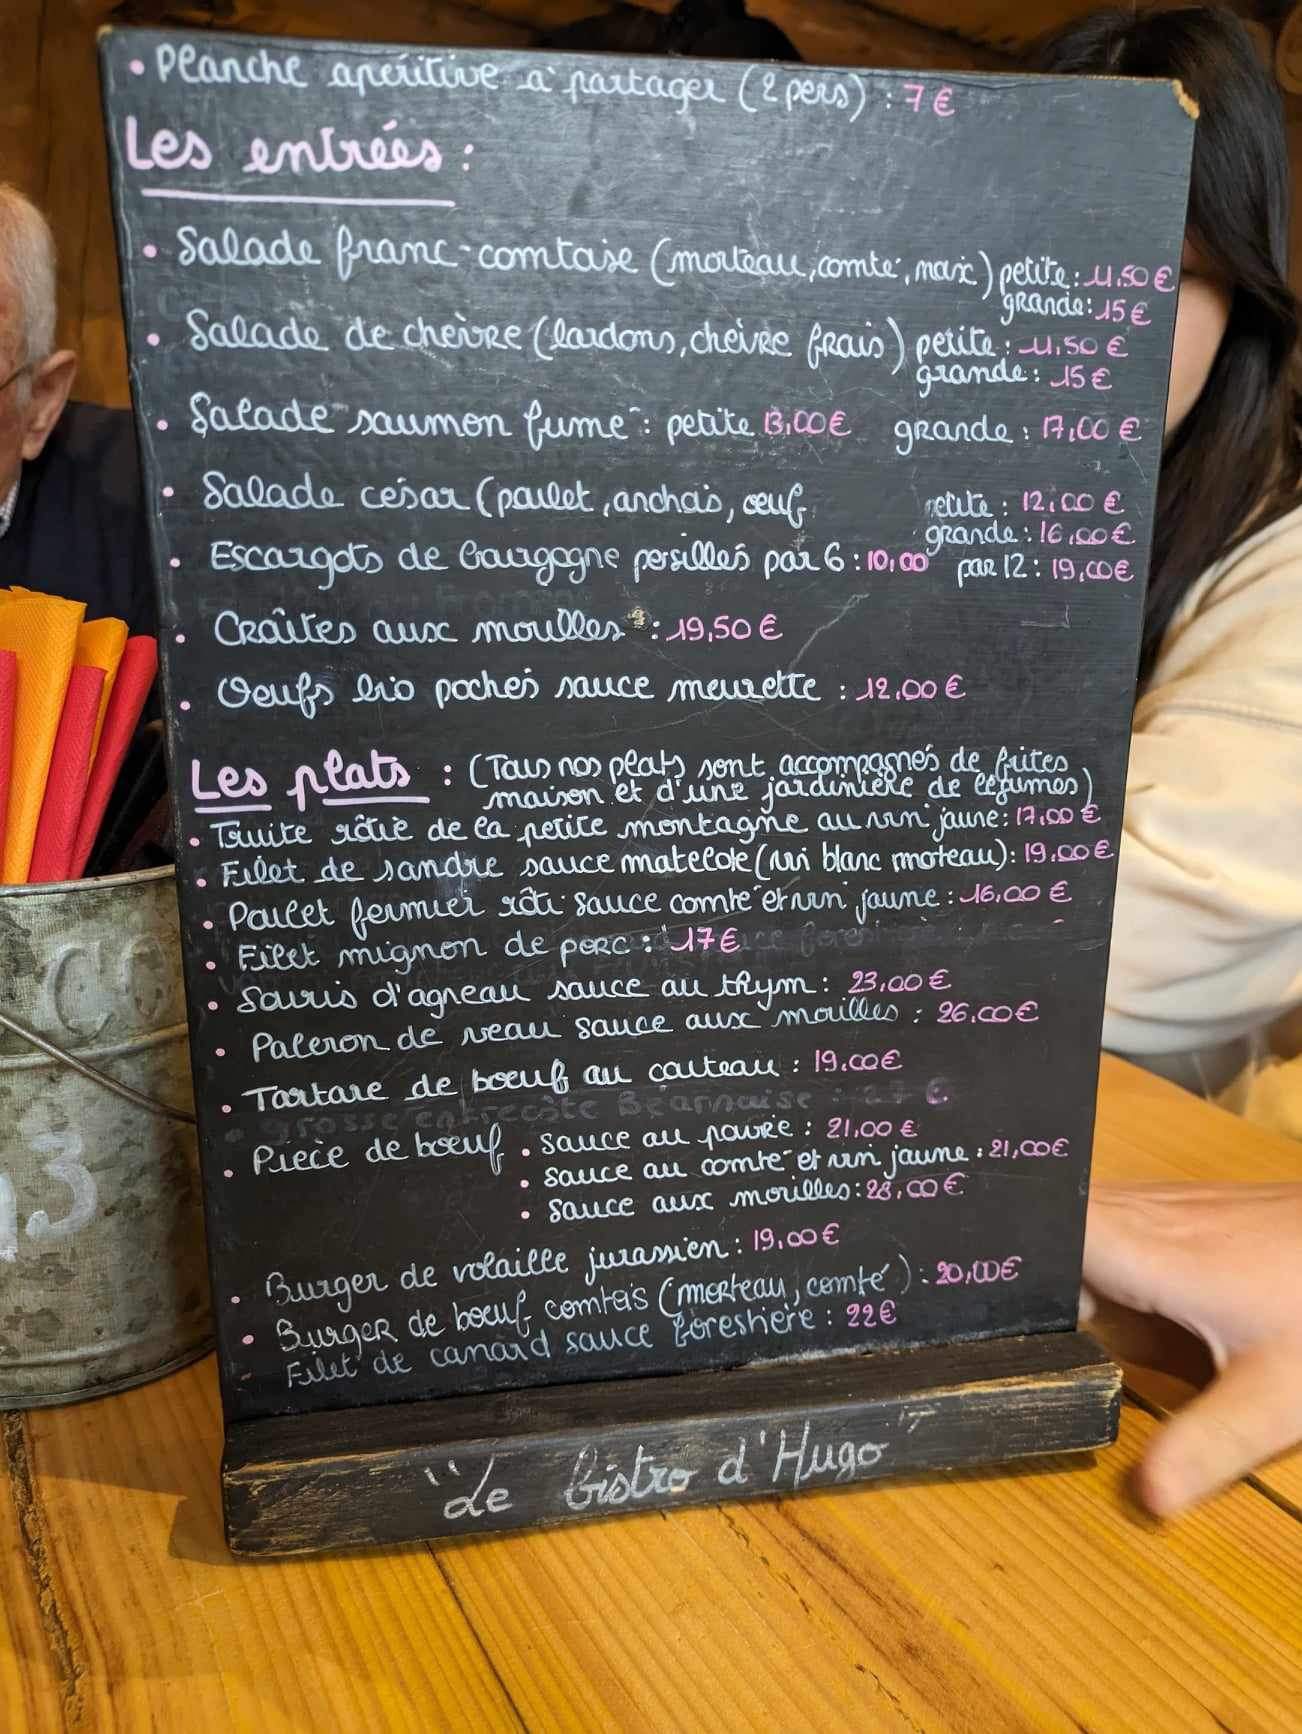 • Planche apéritive à partager (2 pers) : 7 €
Les entrées :
• Salade franc-comtoise (morteau, comté, noix) petite : 11,50 €
grande : 15 €
• Salade de chèvre (lardons, chèvre frais) petite : 11,50 €
grande : 15 €
• Salade saumon fumé : petite 13,00 € grande : 17,00 €
• Salade césar (poulet, anchois, œuf petite : 12,00 €
grande : 16,00 €
• Escargots de bourgogne persillés par 6 : 10,00 par 12 : 19,00 €
• Croûtes aux morilles : 19,50 €
• Oeufs bio pochés sauce meurette : 12,00 €
Les plats : (Tous nos plats sont accompagnés de frites
maison et d'une jardinière de légumes)
• Truite rôtie de la petite montagne au vin jaune : 17,00 €
• Filet de sandre sauce matelote (vin blanc moteau) : 19,00 €
• Poulet fermier rôti sauce comté et vin jaune : 16,00 €
• Filet mignon de porc : 17 €
• Souris d'agneau sauce au thym : 23,00 €
• Paleron de veau sauce aux morilles : 26,00 €
• Tartare de boeuf au couteau : 19,00 €
• grosse entrecôte Béarnaise : 27 €
• Pièce de boeuf • sauce au poivre : 21,00 €
• sauce au comté et vin jaune : 21,00 €
• sauce aux morilles : 28,00 €
• Burger de volaille jurassien : 19,00 €
• Burger de boeuf comtois (morteau, comté) : 20,00 €
Filet de canard sauce foreshière : 22 €
"Le bistro d'Hugo"